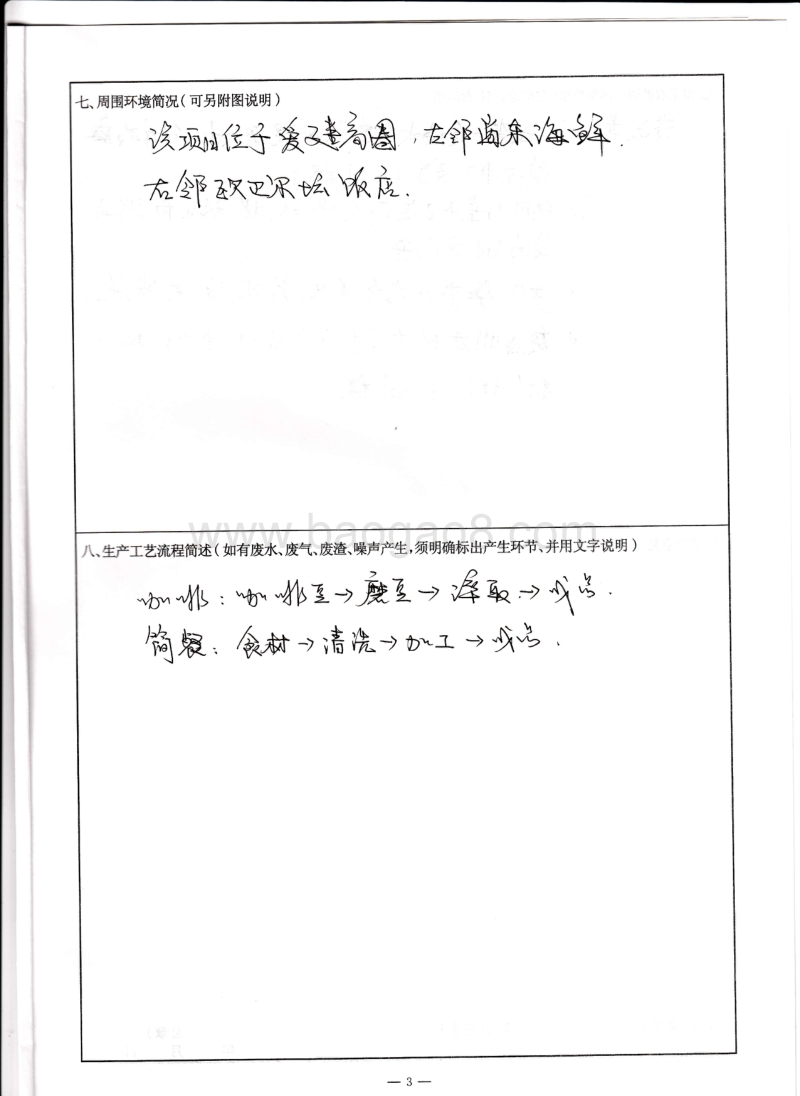 七、周围环境简况(可另附图说明)
该项目位于爱建商圈,左邻尚东海鲜.
右邻欧巴罗坛饭店.
www.baogao8.com
八、生产工艺流程简述(如有废水、废气、废渣、噪声产生,须明确标出产生环节、并用文字说明)
咖啡:咖啡豆→磨豆→萃取→成品.
简餐:食材→清洗→加工→成品.
— 3 —